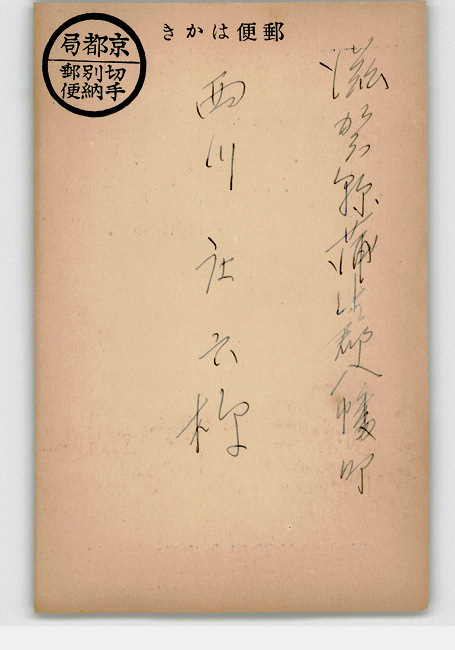 郵便はかき
京都局
切手別納郵便
滋賀縣蒲生郡八幡町
西川庄六様